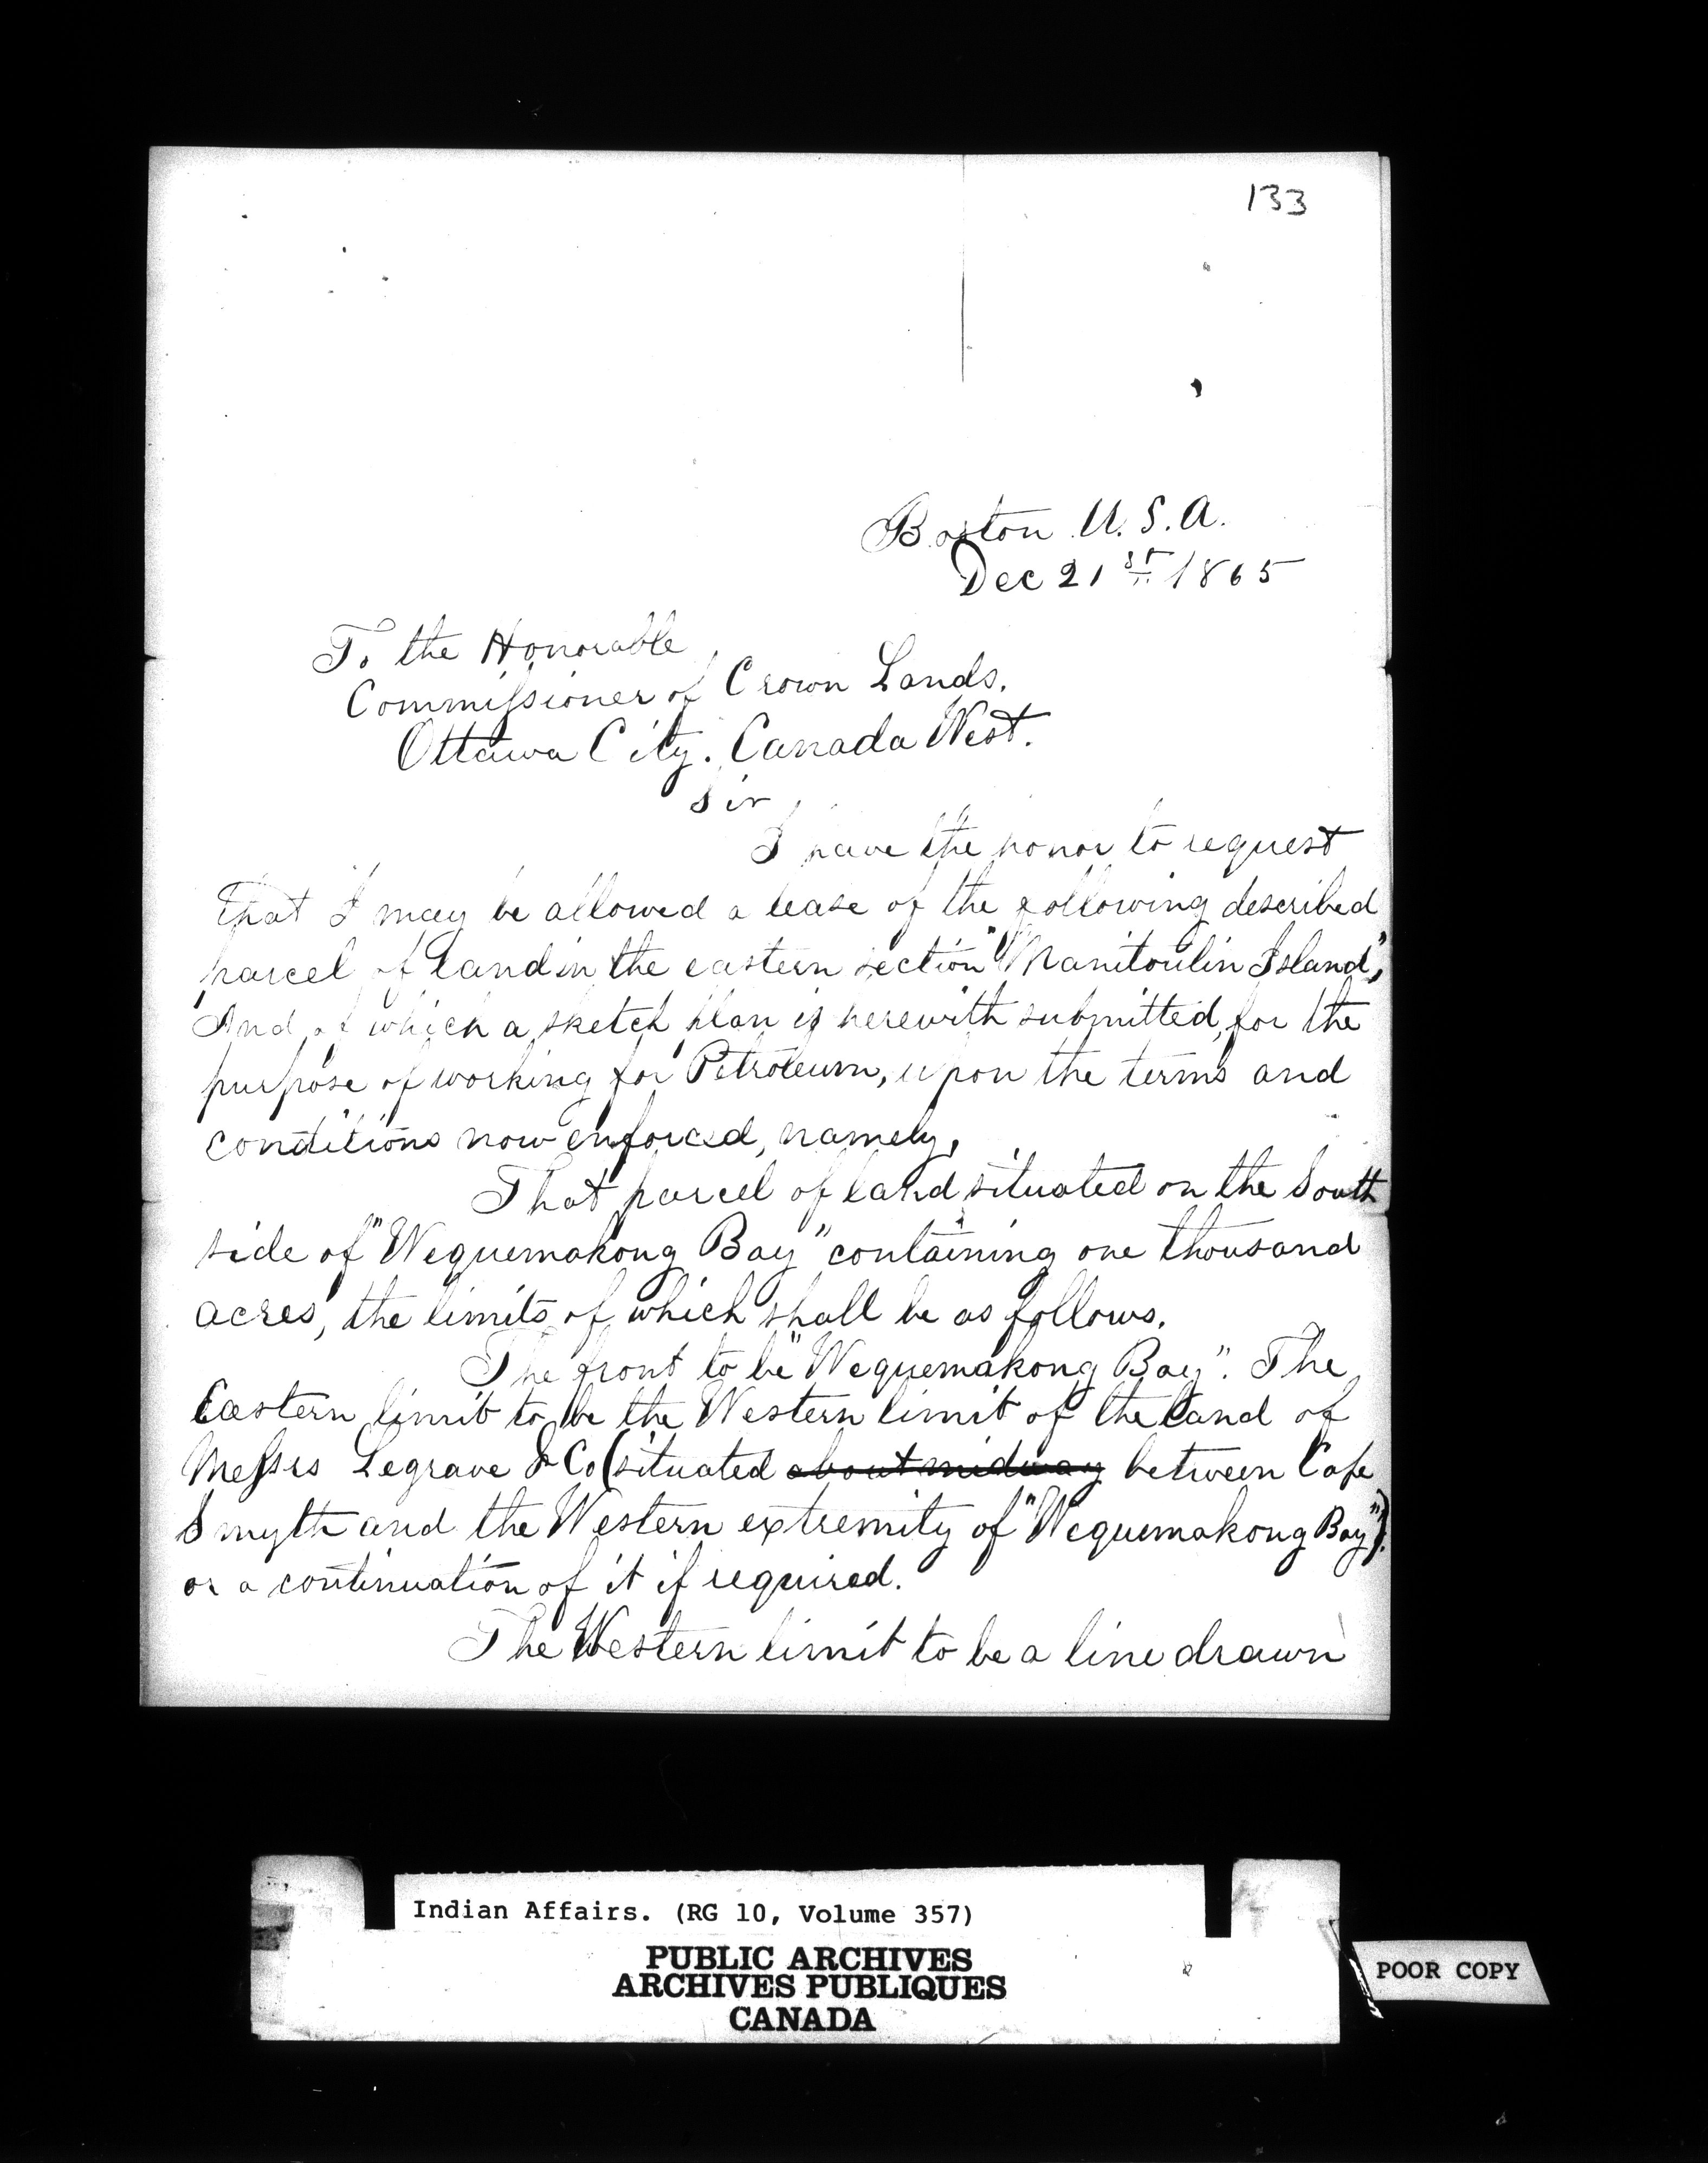 133
Boston U.S.A.
Dec 21st 1865
To the Honorable
Commissioner of Crown Lands.
Ottawa City. Canada West.
Sir,
I have the honor to request
that I may be allowed a lease of the following described
parcel of land in the eastern section "Manitoulin Island",
And of which a sketch plan is herewith submitted, for the
purpose of working for Petroleum, upon the terms and
conditions now enforced, namely,
That parcel of land situated on the South
side of "Wequemakong Bay" containing one thousand
acres, the limits of which shall be as follows.
The front to be "Wequemakong Bay". The
Eastern limit to be the Western limit of the land of
Messrs Legrave & Co (situated about midway between Cape
Smyth and the Western extremity of "Wequemakong Bay")
or a continuation of it if required.
The Western limit to be a line drawn
Indian Affairs. (RG 10, Volume 357)
PUBLIC ARCHIVES
ARCHIVES PUBLIQUES
CANADA
POOR COPY